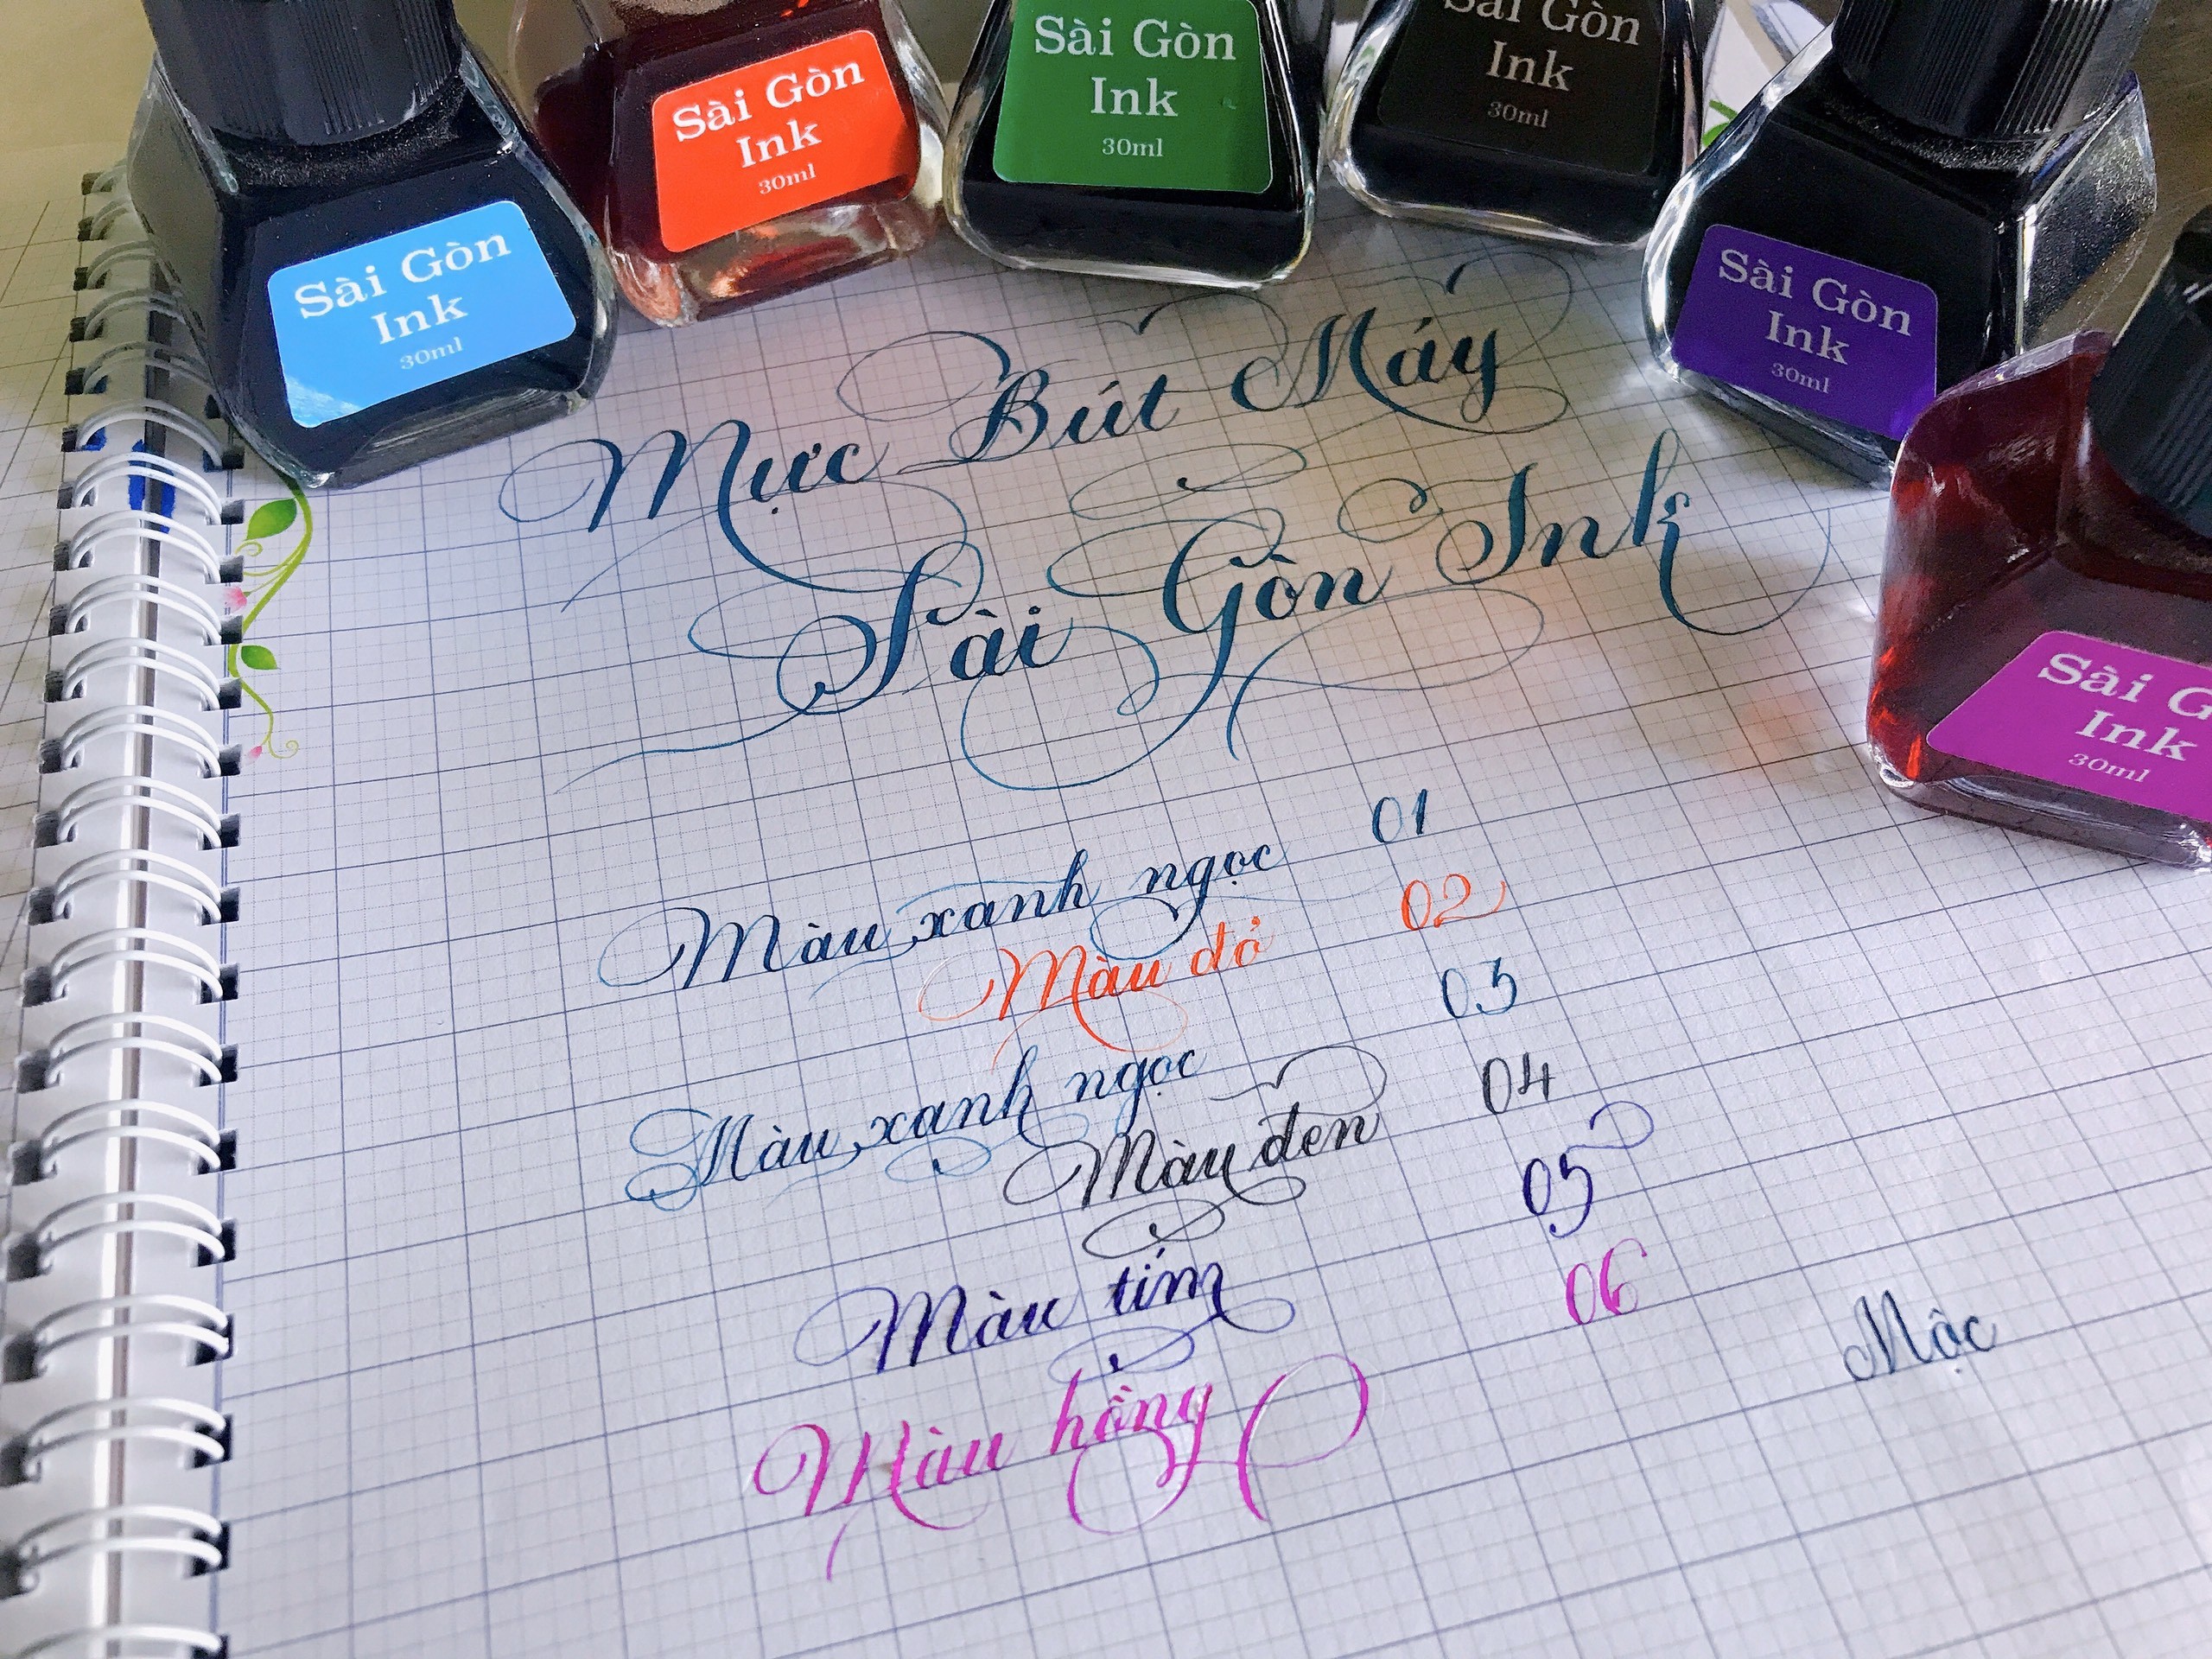 Sài Gòn
Ink
30ml
Sài Gòn
Ink
30ml
Sài Gòn
Ink
30ml
Sài Gòn
Ink
30ml
Sài Gòn
Ink
30ml
Sài G
Ink
30ml
Mực Bút Máy
Sài Gòn Ink
Màu xanh ngọc 01
Màu đỏ 02
Màu xanh ngọc 03
Màu đen 04
Màu tím 05
Màu hồng 06
Mộc